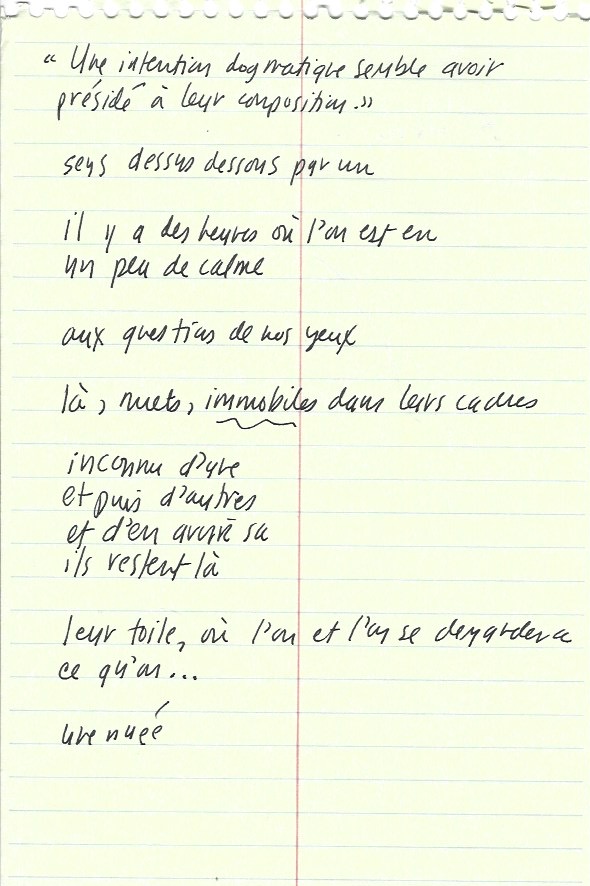 « Une intention dogmatique semble avoir
présidé à leur composition.»
sens dessus dessous par un
il y a des heures où l'on est en
un peu de calme
aux questions de nos yeux
là, muets, immobiles dans leurs cadres
inconnu d'une
et puis d'autres
et d'en avoir sa
ils restent là
leur toile, où l'on et l'on se demandera
ce qu'on...
une nuée